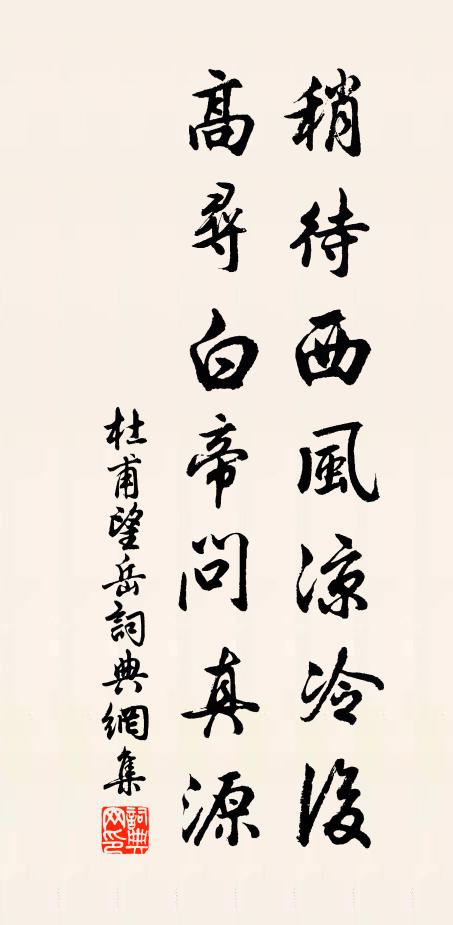 稍待西風涼冷後
高尋白帝問真源
杜甫望岳詞典網集
詞典网印